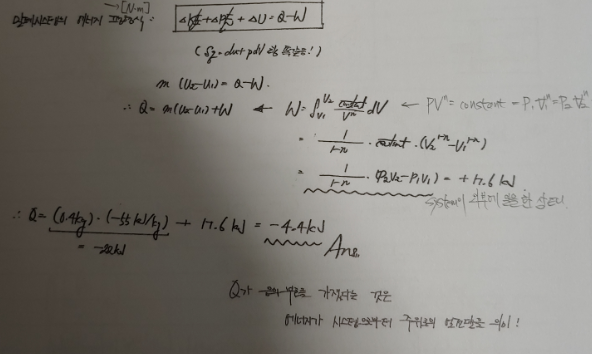 → [N·m]
밀폐시스템의 에너지 평형방정식: ΔKE + ΔPE + ΔU = Q - W
(δq = du + pdV 랑 똑같음!)
m(U₂-U₁) = Q-W.
∴ Q = m(U₂-U₁)+W ← W = ∫_{V₁}^{V₂} constant/Vⁿ dV ← PVⁿ = constant = P₁V₁ⁿ = P₂V₂ⁿ
= 1/(1-n) · constant · (V₂¹⁻ⁿ - V₁¹⁻ⁿ)
= 1/(1-n) · (P₂V₂ - P₁V₁) = +17.6 kJ
system이 외부에 일을 한 상태
∴ Q = (0.4kg)·(-55 kJ/kg) + 17.6 kJ = -4.4kJ
= -22kJ
Ans.
Q가 음의 부호를 가졌다는 것은
에너지가 시스템으로부터 주위로의 열전달을 의미!